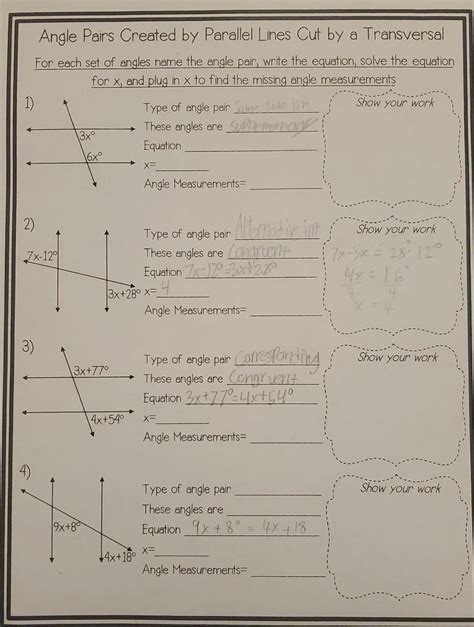 Angle Pairs Created by Parallel Lines Cut by a Transversal
For each set of angles name the angle pair, write the equation, solve the equation
for x, and plug in x to find the missing angle measurements
1)
3x°
6x°
Type of angle pair
These angles are
Equation
x=
Angle Measurements=
Show your work
2)
7x-12°
3x+28°
Type of angle pair Alternative int
These angles are Congruent
Equation 7x-12°=3x+28°
x= 4
Angle Measurements=
Show your work
7x-3x = 28°-12°
4x = 16°
4 4
x = 4
3)
3x+77°
4x+54°
Type of angle pair Corresponding
These angles are Congruent
Equation 3x+77°=4x+54°
x=
Angle Measurements=
Show your work
4)
9x+8°
4x+18°
Type of angle pair
These angles are
Equation 9x+8° = 4x+18
x=
Angle Measurements=
Show your work